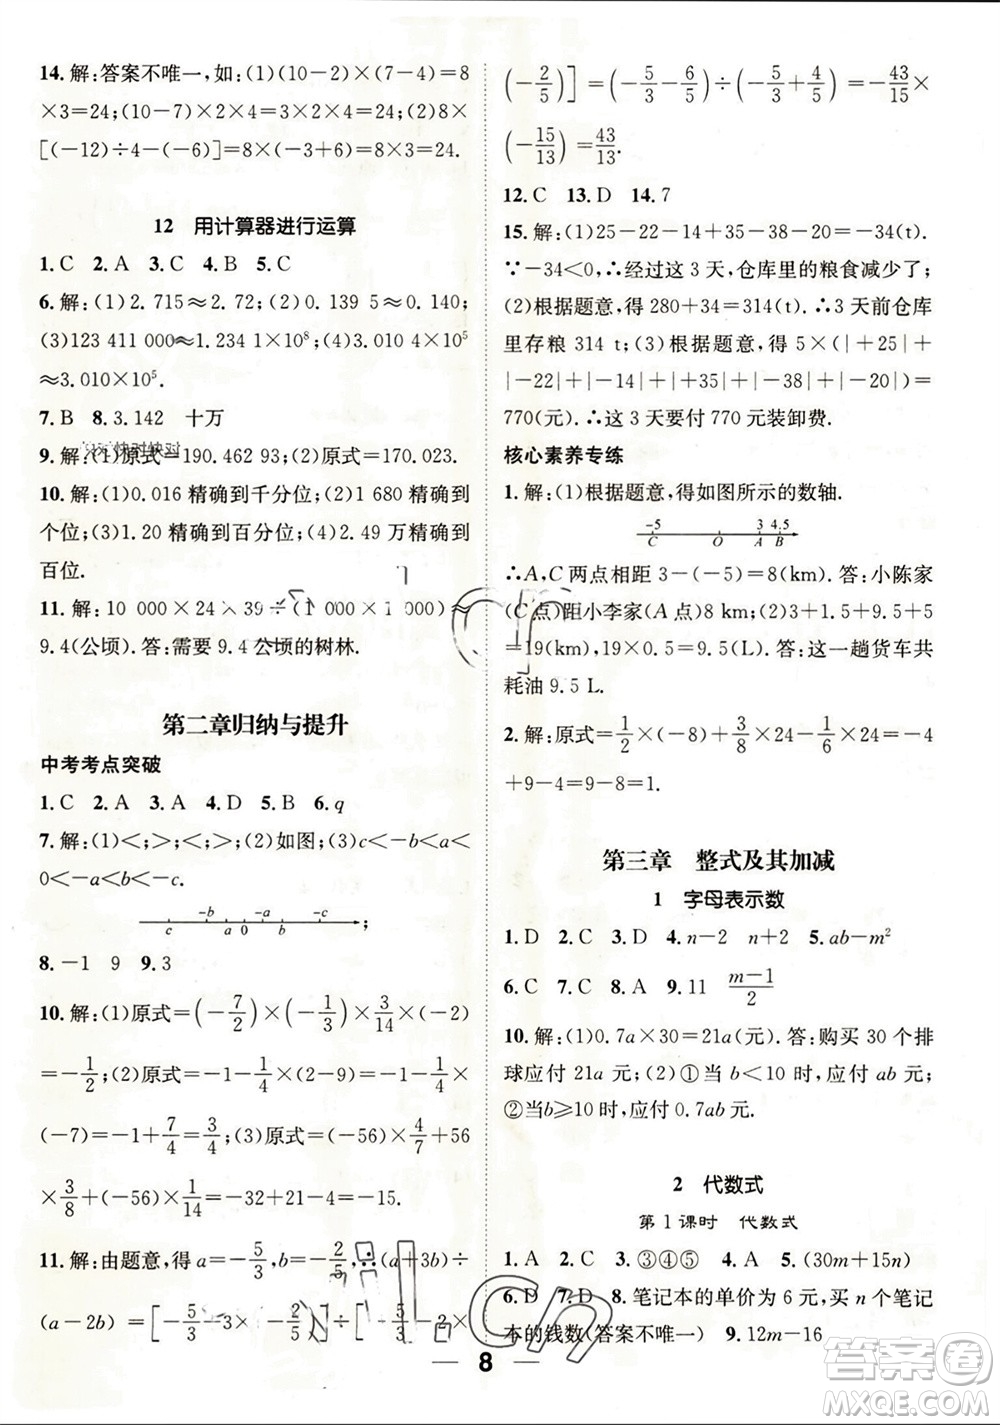 14.解:答案不唯一,如:(1)(10-2)×(7-4)=8
×3=24;(10-7)×2×4=3×2×4=24;(2)8×
[(-12)÷4-(-6)]=8×(-3+6)=8×3=24.
12 用计算器进行运算
1.C 2.A 3.C 4.B 5.C
6.解:(1)2.715≈2.72;(2)0.139 5≈0.140;
(3)123 411 000≈1.234 1×10⁸;(4)3.010 4×10⁵
≈3.010×10⁵.
7.B 8.3.142 十万
9.解:(1)原式=190.462 93;(2)原式=170.023.
10.解:(1)0.016 精确到千分位;(2)1 680 精确到
个位;(3)1.20 精确到百分位;(4)2.49 万精确到
百位.
11.解:10 000×24×39÷(1 000×1 000)≈
9.4(公顷).答:需要 9.4 公顷的树林.
第二章归纳与提升
中考考点突破
1.C 2.A 3.A 4.D 5.B 6.q
7.解:(1)<;>;<;>;(2)如图;(3)c<-b<a<
0<-a<b<-c.
-b -a -c
c a 0 b ;
8.-1 9 9.3
10.解:(1)原式=(-7/2)×(-1/3)×3/14×(-2)
=-1/2;(2)原式=-1-1/4×(2-9)=-1-1/4×
(-7)=-1+7/4=3/4;(3)原式=(-56)×4/7+56
×3/8+(-56)×1/14=-32+21-4=-15.
11.解:由题意,得 a=-5/3,b=-2/5,∴(a+3b)÷
(a-2b)=[-5/3+3×(-2/5)]÷[-5/3-2×
(-2/5)]=(-5/3-6/5)÷(-5/3+4/5)=-43/15×
(-15/13)=43/13.
12.C 13.D 14.7
15.解:(1)25-22-14+35-38-20=-34(t).
∵-34<0,∴经过这 3 天,仓库里的粮食减少了;
(2)根据题意,得 280+34=314(t).∴3 天前仓库
里存粮 314 t;(3)根据题意,得 5×(|+25|+
|-22|+|-14|+|+35|+|-38|+|-20|)=
770(元).∴这 3 天要付 770 元装卸费.
核心素养专练
1.解:(1)根据题意,得如图所示的数轴.
-5 3 4.5
C O A B
∴A,C 两点相距 3-(-5)=8(km).答:小陈家
(C 点)距小李家(A 点)8 km;(2)3+1.5+9.5+5
=19(km),19×0.5=9.5(L).答:这一趟货车共
耗油 9.5 L.
2.解:原式=1/2×(-8)+3/8×24-1/6×24=-4
+9-4=-4+9+(-4)=1.
第三章 整式及其加减
1 字母表示数
1.D 2.C 3.D 4.n-2 n+2 5.ab-m²
6.C 7.C 8.A 9.11 (m-1)/2
10.解:(1)0.7a×30=21a(元).答:购买 30 个排
球应付 21a 元;(2)①当 b<10 时,应付 ab 元;
②当b≥10 时,应付 0.7ab元.
2 代数式
第 1 课时 代数式
1.A 2.C 3.③④⑤ 4.A 5.(30m+15n)
6.D 7.D 8.笔记本的单价为 6 元,买 n 个笔记
本的钱数(答案不唯一) 9.12m-16
8
答案圈
MXQE.COM